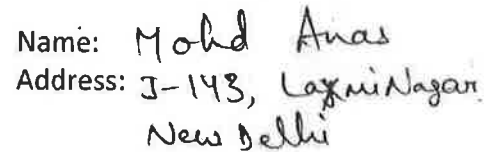 Name: Mohd Anas
Address: J-143, Laxmi Nagar
New Delhi